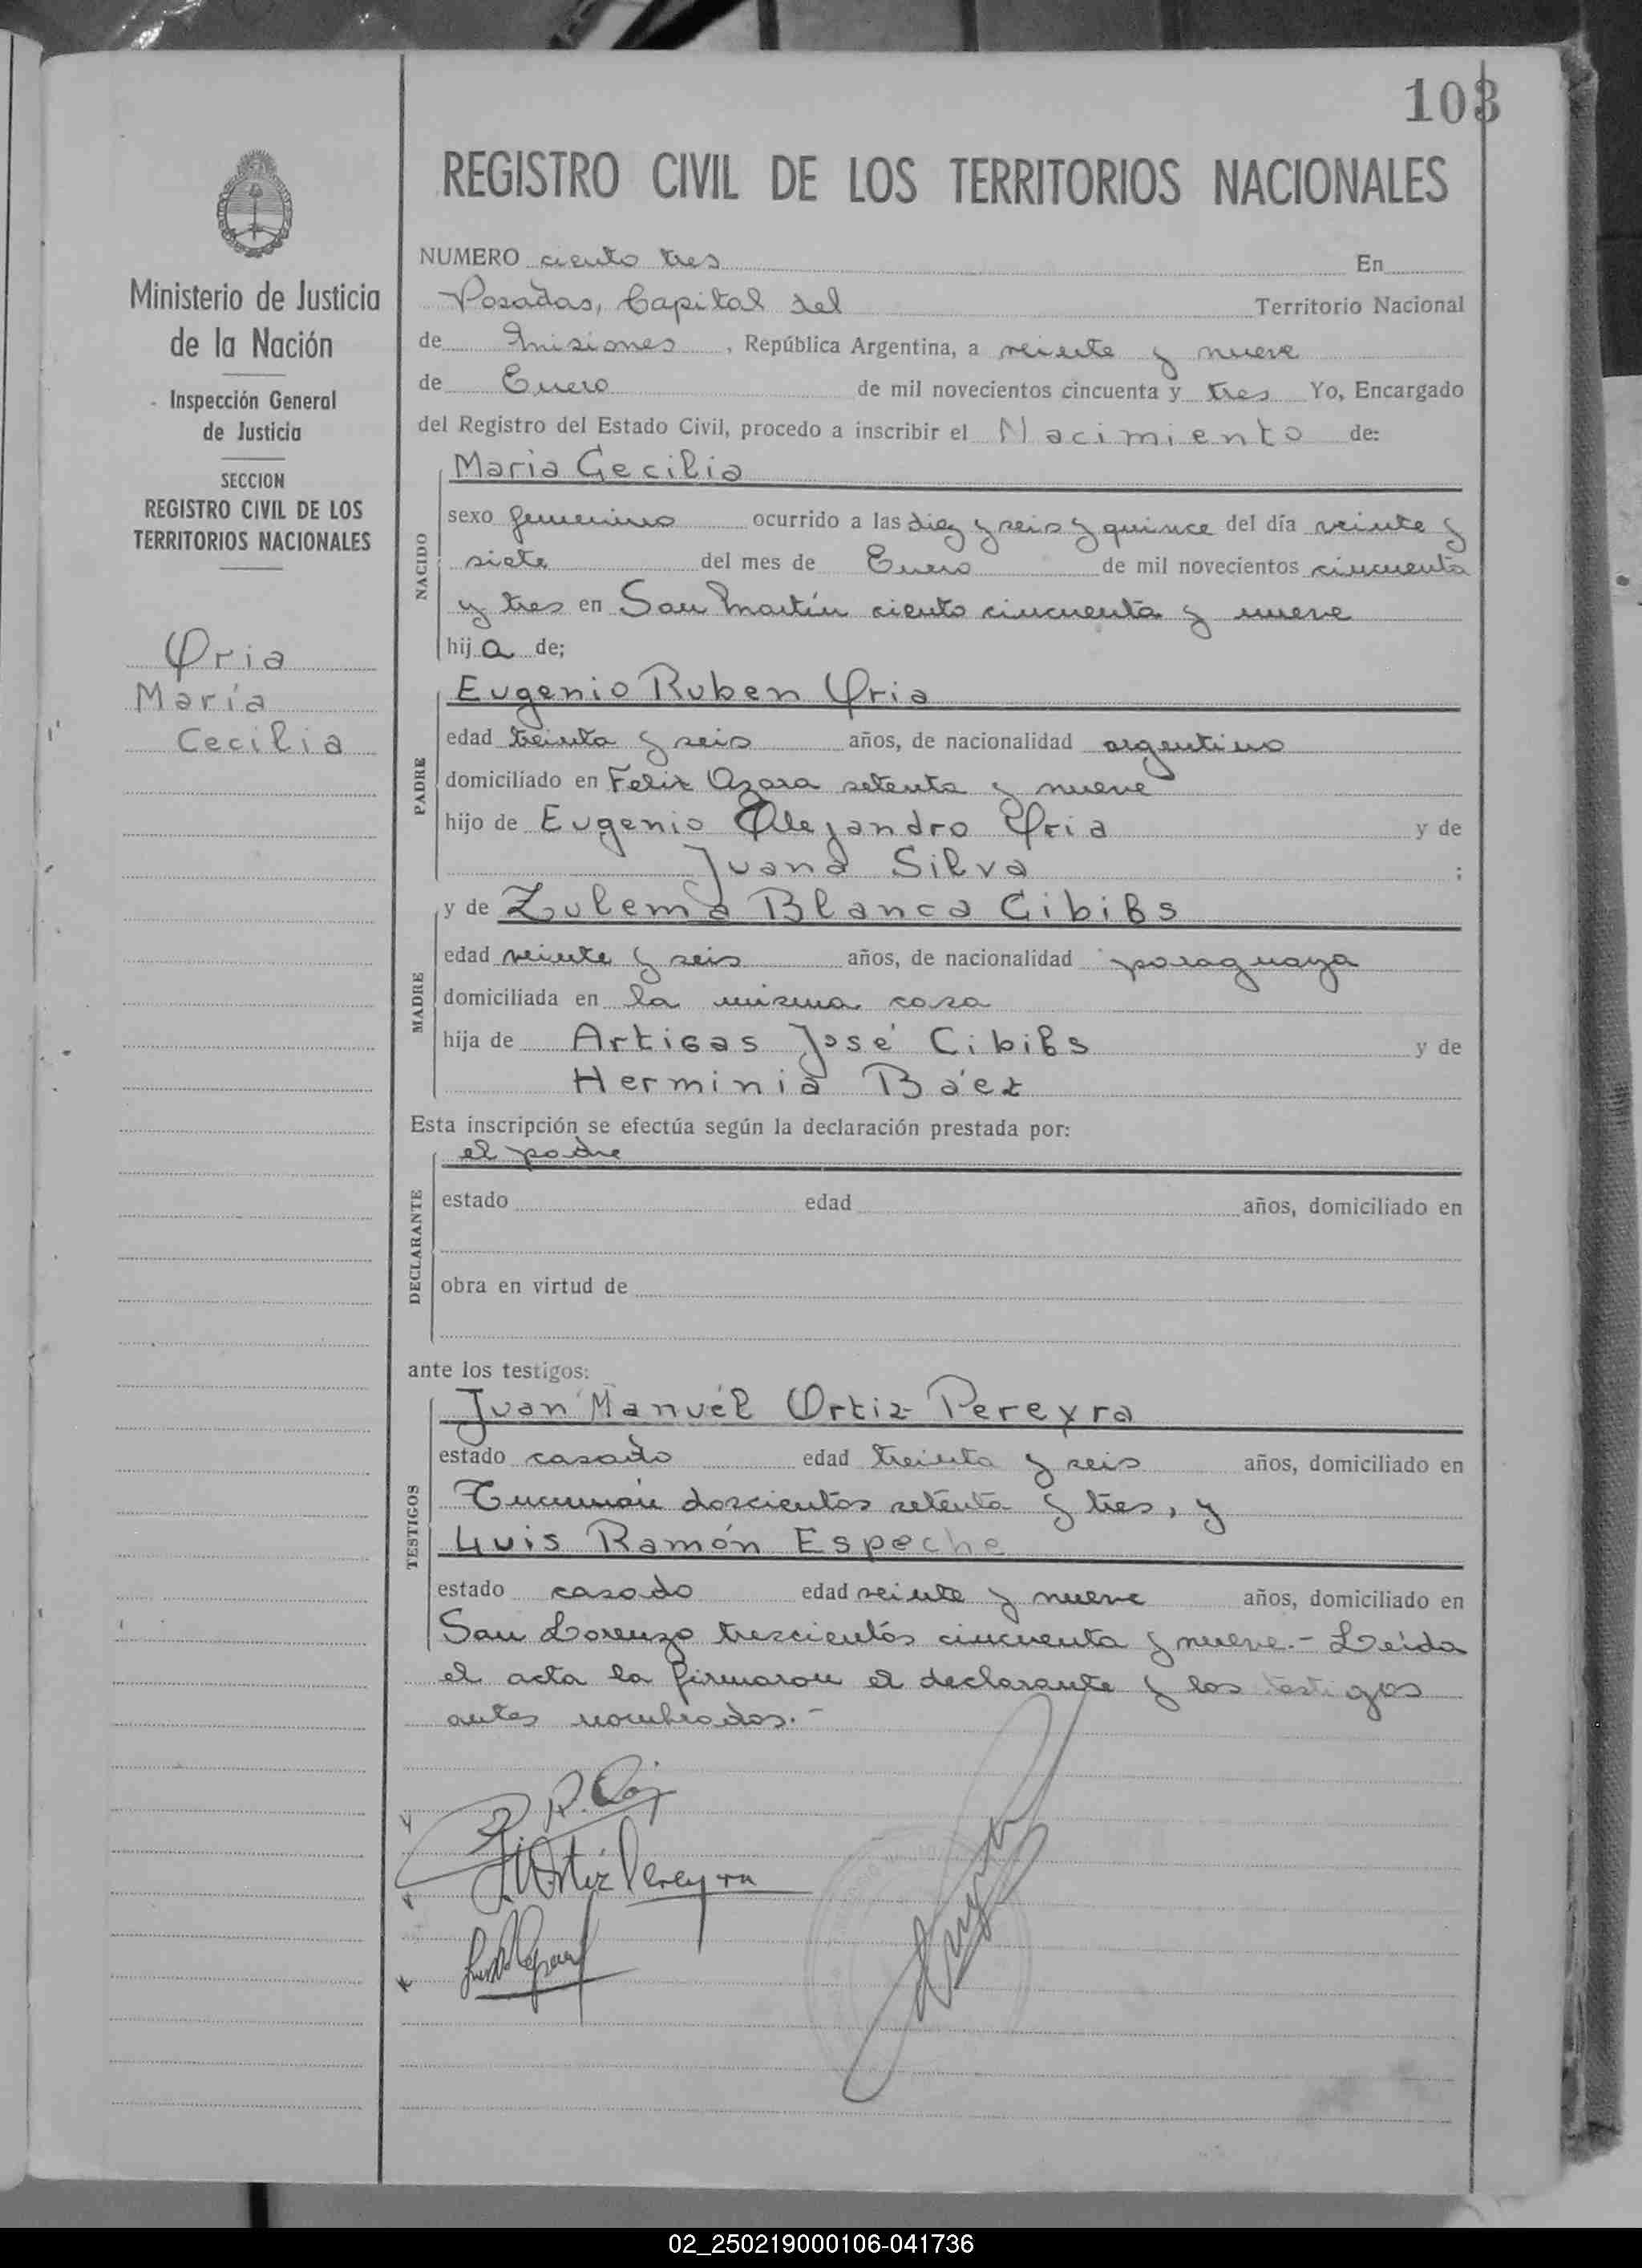 103
REGISTRO CIVIL DE LOS TERRITORIOS NACIONALES
Ministerio de Justicia
de la Nación
Inspección General
de Justicia
SECCION
REGISTRO CIVIL DE LOS
TERRITORIOS NACIONALES
Oria
María
Cecilia
NUMERO ciento tres En
Posadas, Capital del Territorio Nacional
de Misiones, República Argentina, a veinte y nueve
de Enero de mil novecientos cincuenta y tres Yo, Encargado
del Registro del Estado Civil, procedo a inscribir el Nacimiento de:
NACIDO
Maria Cecilia
sexo femenino ocurrido a las diez y seis y quince del día veinte y
siete del mes de Enero de mil novecientos cincuenta
y tres en San Martín ciento cincuenta y nueve
hija de;
PADRE
Eugenio Ruben Oria
edad treinta y seis años, de nacionalidad argentino
domiciliado en Felix Azara setenta y nueve
hijo de Eugenio Alejandro Oria y de
Juana Silva ;
MADRE
y de Zulema Blanca Cibils
edad veinte y seis años, de nacionalidad paraguaya
domiciliada en la misma casa
hija de Artigas José Cibils y de
Herminia Báez
Esta inscripción se efectúa según la declaración prestada por:
DECLARANTE
el padre
estado edad años, domiciliado en
obra en virtud de
ante los testigos:
TESTIGOS
Juan Manuél Ortiz Pereyra
estado casado edad treinta y seis años, domiciliado en
Tucumán doscientos setenta y tres, y
Luis Ramón Espeche
estado casado edad veinte y nueve años, domiciliado en
San Lorenzo trescientos cincuenta y nueve.- Leída
el acta la firmaron el declarante y los testigos
antes nombrados.-
Ortiz Pereyra
02_250219000106-041736